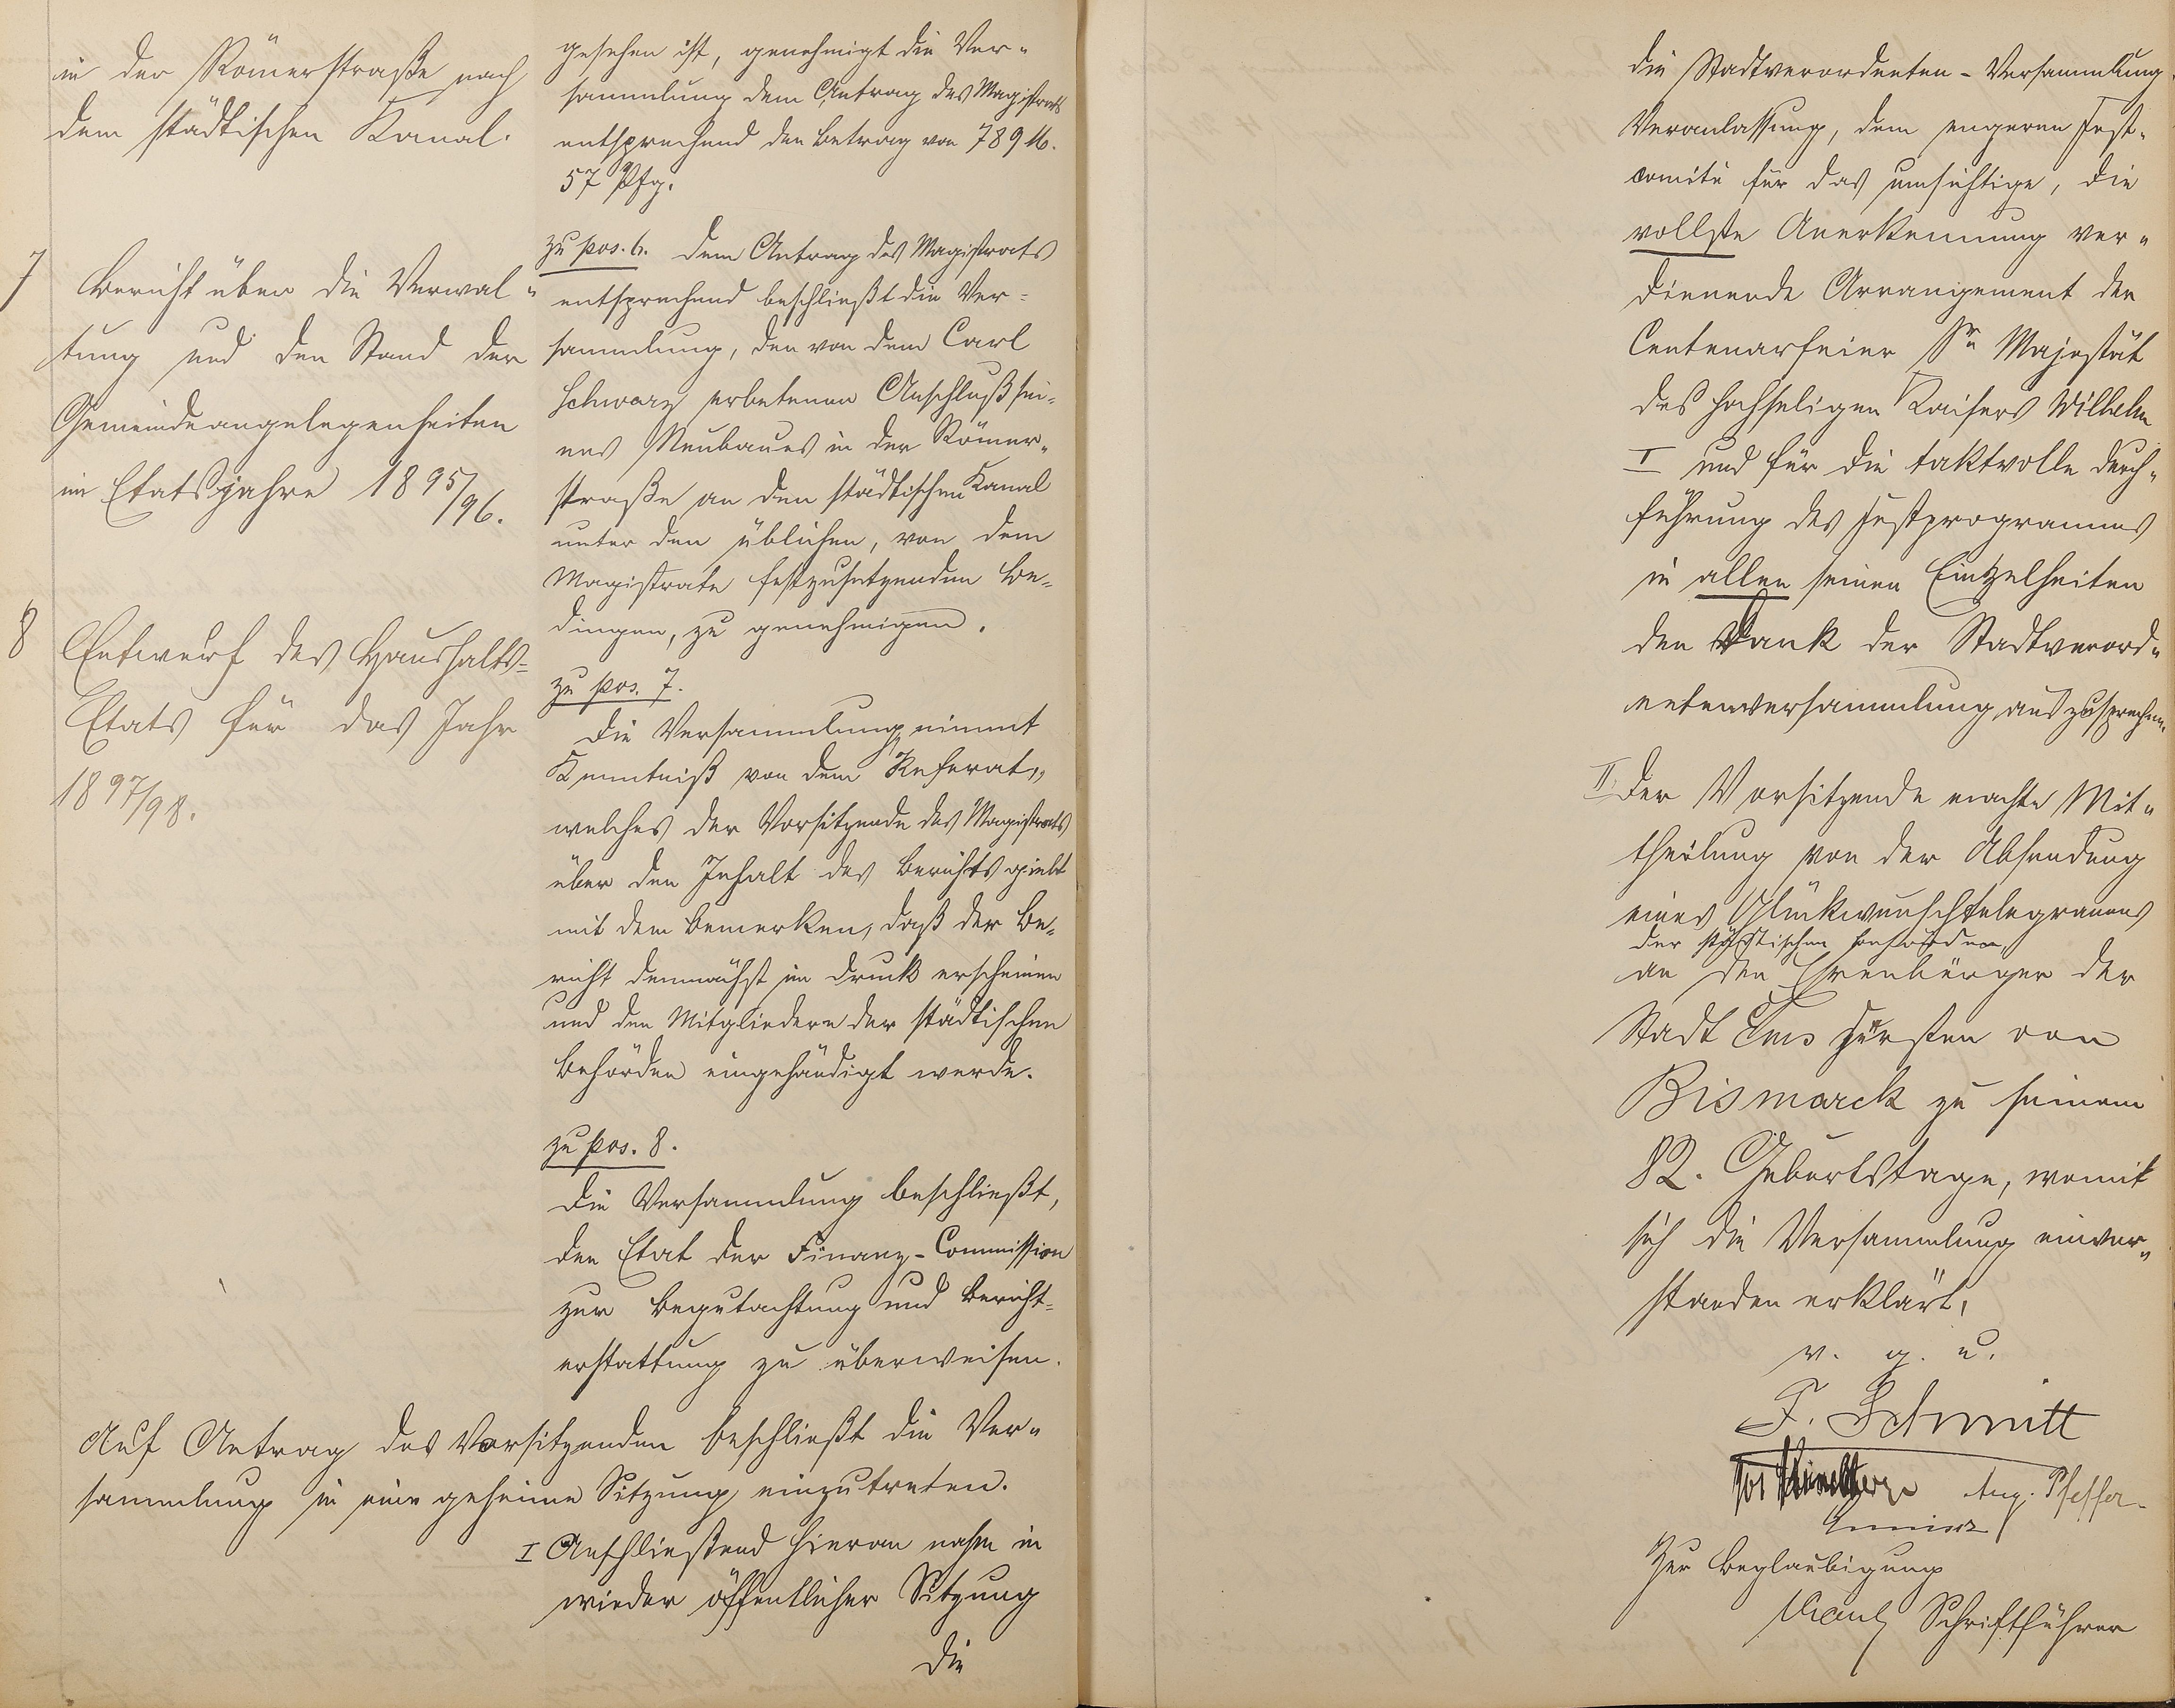 in der Römerstraße nach
dem städtischen Kanal.
7 Bericht über die Verwal-
tung und den Stand der
Gemeindeangelegenheiten
im Etatsjahre 1895/96.
8 Entwurf des Haushalts-
Etats für das Jahr
1897/98.
gesehen ist, genehmigt die Ver-
sammlung dem Antrag des Magistrats
entsprechend den Betrag von 789 M.
57 Pfg.
zu pos. 6. Dem Antrag des Magistrats
entsprechend beschließt die Ver-
sammlung, den von dem Carl
Schwarz erbetenen Anschluß sei-
nes Neubaues in der Römer-
straße an den städtischen Kanal
unter den üblichen, von dem
Magistrate festzusetzenden Be-
dingen, zu genehmigen.
zu pos. 7.
Die Versammlung nimmt
Kenntniß von dem Referat,
welches der Vorsitzende des Magistrats
über den Inhalt des Berichts giebt
mit dem Bemerken, daß der Be-
richt demnächst im Druck erscheinen
und den Mitgliedern der städtischen
Behörden eingehändigt werde.
zu pos. 8.
Die Versammlung beschließt,
den Etat der Finanz-Commission
zur Begutachtung und Bericht-
erstattung zu überweisen.
Auf Antrag des Vorsitzenden beschließt die Ver-
sammlung in eine geheime Sitzung einzutreten.
I Anschließend hieran nahm in
wieder öffentlicher Sitzung
die
die Stadtverordneten-Versammlung
Veranlassung, dem engeren Fest-
comité für das umsichtige, die
vollste Anerkennung ver-
dienende Arrangement der
Centenarfeier Sr Majestät
des hochseligen Kaisers Wilhelm
I und für die taktvolle Durch-
führung des Festprogrammes
in allen seinen Eintzelheiten
den Dank der Stadtverord-
netenversammlung auszusprechen.
II Der Vorsitzende machte Mit-
theilung von der Absendung
eines Glückwunschtelegramms
der städtischen Behörden
an den Ehrenbürger der
Stadt Ems Fürsten von
Bismarck zu seinem
82. Geburtstage, womit
sich die Versammlung einver-
standen erklärt.
v. g. u.
F. Schmitt
Aug. Pfeffer
Zur Beglaubigung
Schriftführer